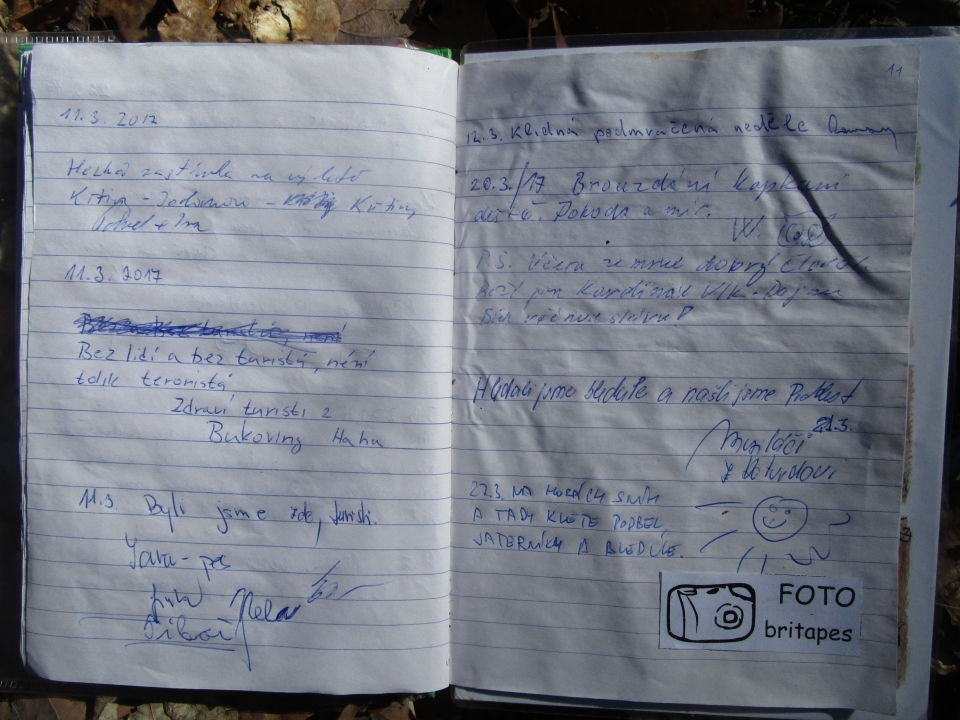 11.3. 2017
Hezká zastávka na výletě
Křtiny - Jedovnice - Křtiny
11.3. 2017
Bez lidí a bez turistů, není
tolik teroristů
Zdraví turisti z
Bukoviny Haha
11.3. Byli jsme zde, turisti.
Jára - pes
11
12.3. Klidná podmračená neděle
20.3./17 Brouzdání kapkami
deště. Pohoda a mír.
W.
P.S. Včera zemřel dobrý člověk
Boží pan Kardinál Vlk. Dej mu
Bůh věčnou slávu!
Hledali jsme bledule a našli jsme Poklest
21.3.
z
22.3. NA HORÁCH SNÍH
A TADY KVETE PODBĚL
JATERNÍKY A BLEDULE.
FOTO
britapes